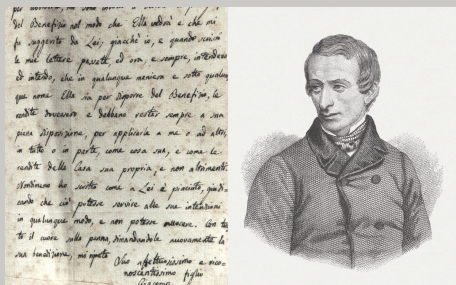 del Benefizio nel modo che Ella vedrà e che mi
fu suggerito da Lei, giacchè io, e quando scrissi
le mie lettere passate, ed ora, e sempre, intendevo
ed intendo, che in qualunque maniera e sotto qualun
que nome Ella sia per disporre del Benefizio, le
rendite dovevano e debbano restar sempre a sua
piena disposizione, per applicarle a me o ad altri,
in tutto o in parte, come cosa sua, e come le
rendite della Casa sua propria, e non altrimenti.
ho scritto come a Lei è piaciuto, giudi
cando che ciò potesse servire alle sue intenzioni
in qualunque modo, e non potesse nuocere. Con tut
to il cuore sulla penna, dimandandole nuovamente la
sua benedizione, mi ripeto
Suo affettuosissimo e rico
noscentissimo figlio
Giacomo